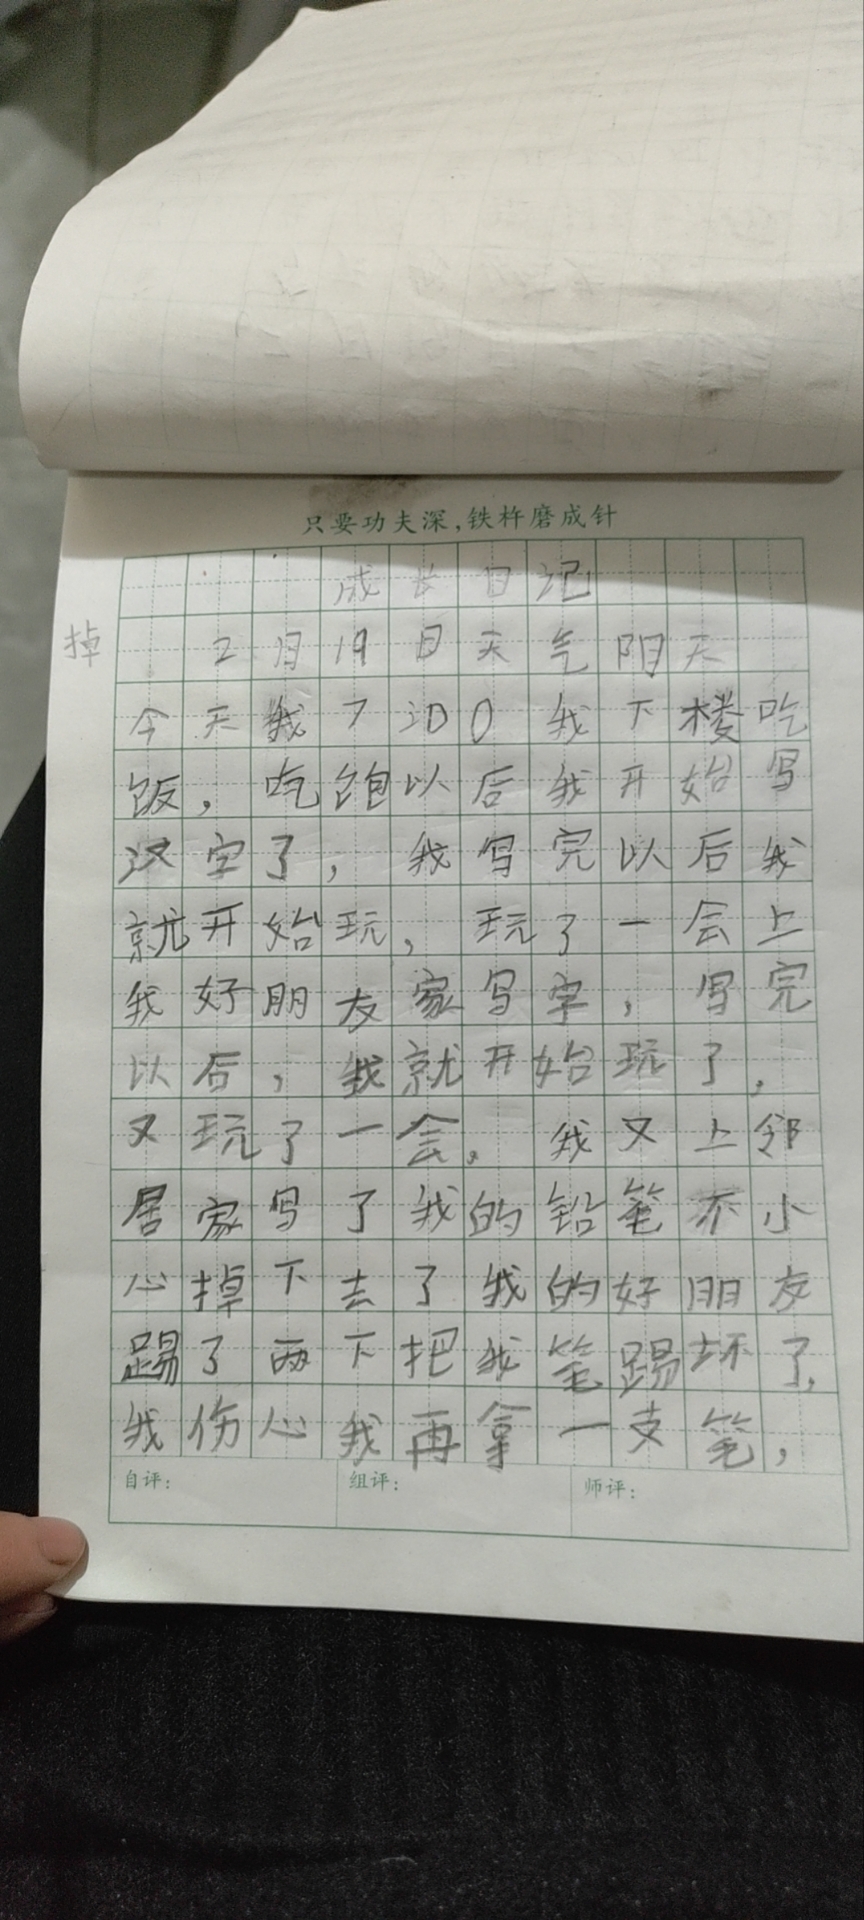 只要功夫深,铁杵磨成针
成长日记
掉
2月19日天气阴天
今天我7:00我下楼吃
饭，吃饱以后我开始写
汉字了，我写完以后我
就开始玩，玩了一会上
我好朋友家写字，写完
以后，我就开始玩了，
又玩了一会，我又上邻
居家写了我的铅笔不小
心掉下去了我的好朋友
踢了两下把我笔踢坏了，
我伤心我再拿一支笔，
自评： 组评： 师评：